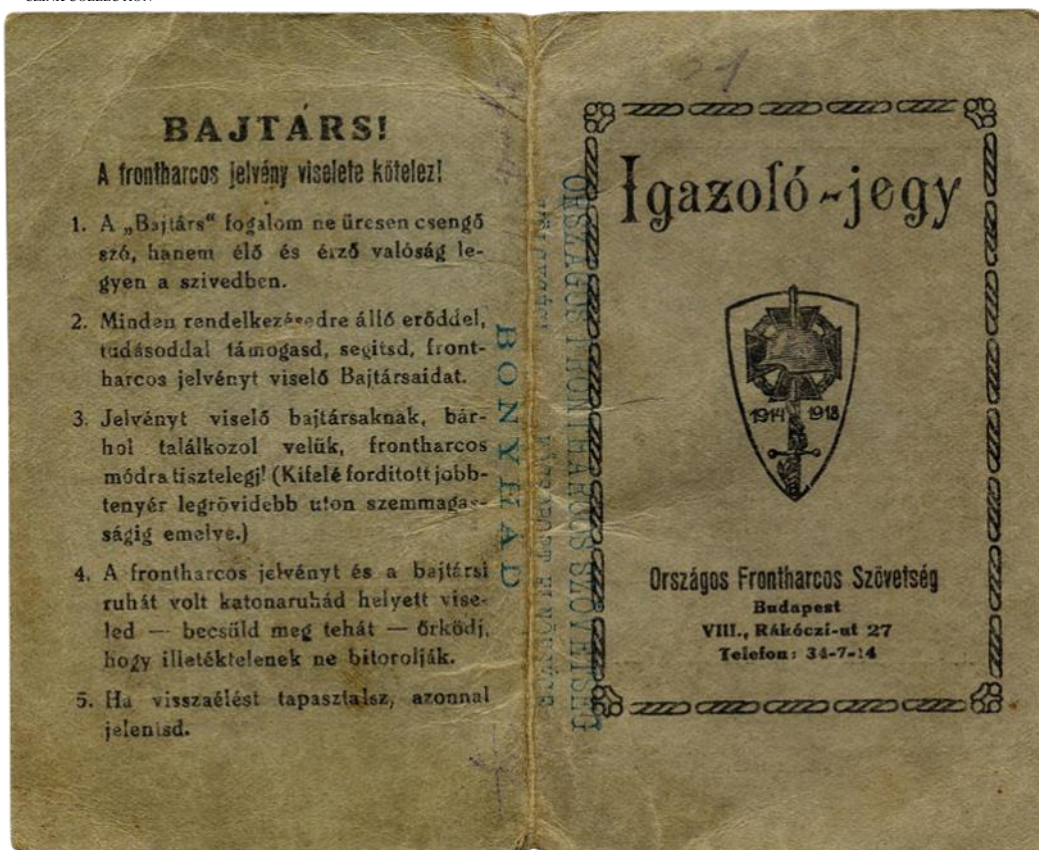 BAJTÁRS!
A frontharcos jelvény viselete kötelez!
1. A „Bajtárs“ fogalom ne üresen csengő
szó, hanem élő és érző valóság le-
gyen a szivedben.
2. Minden rendelkezésedre álló erőddel,
tudásoddal támogasd, segitsd, front-
harcos jelvényt viselő Bajtársaidat.
3. Jelvényt viselő bajtársaknak, bár-
hol találkozol velük, frontharcos
módra tisztelegj! (Kifelé forditott jobb-
tenyér legrövidebb uton szemmagas-
ságig emelve.)
4. A frontharcos jelvényt és a bajtársi
ruhát volt katonaruhád helyett vise-
led — becsüld meg tehát — őrködj,
hogy illetéktelenek ne bitorolják.
5. Ha visszaélést tapasztalsz, azonnal
jelentsd.
BONYHÁD
ORSZÁGOS FRONTHARCOS SZÖVETSÉG
Igazoló-jegy
1914 1918
Országos Frontharcos Szövetség
Budapest
VIII., Rákóczi-ut 27
Telefon: 34-7-14